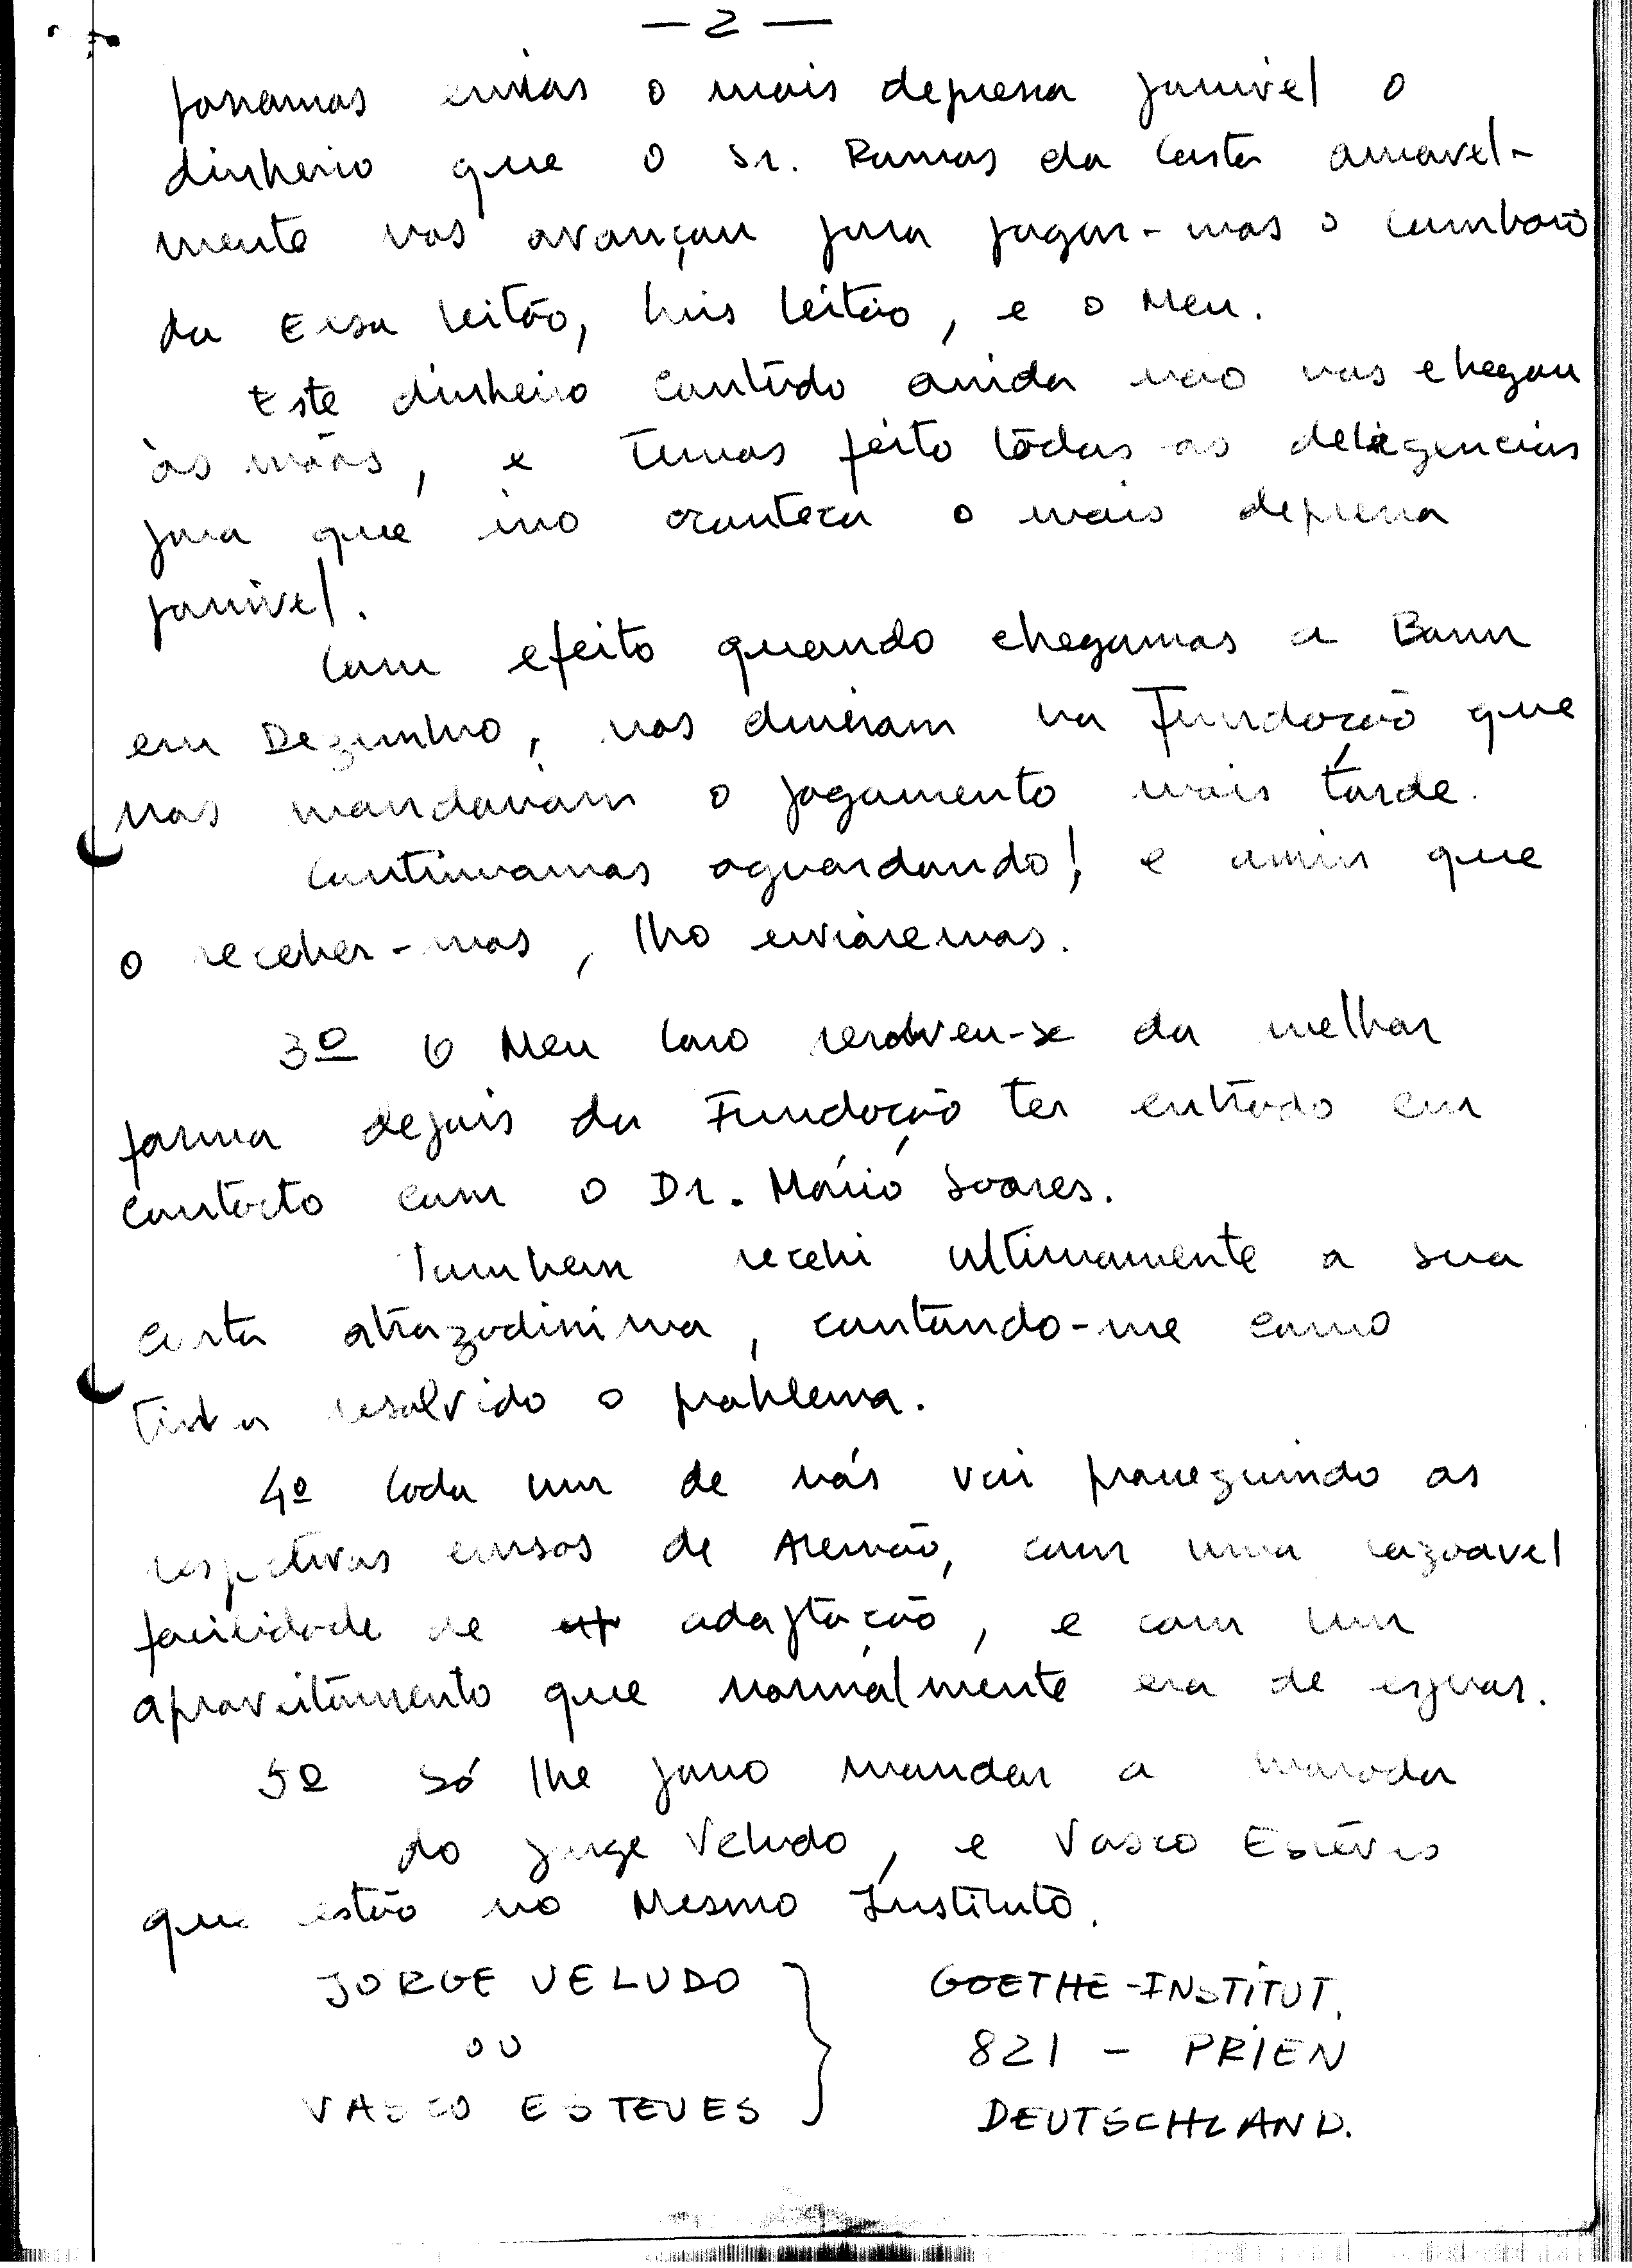 — 2 —
possamos enviar o mais depressa possivel o
dinheiro que o Sr. Ramos da Costa amavel-
mente nos avançou para pagar-mos o comboio
da Elsa Leitão, Luis Leitão, e o Meu.
Este dinheiro contudo ainda não nos chegou
às mãos, e temos feito tôdas as deligencias
para que isso aconteça o mais depressa
possivel.
Com efeito quando chegamos a Bonn
em Dezembro, nos disseram na Fundação que
nos mandavam o pagamento mais tarde.
Continuamos aguardando! e assim que
o receber-mos, lho enviaremos.
3º O Meu caso resolveu-se da melhor
forma depois da Fundação ter entrado em
contacto com o Dr. Mário Soares.
Tambem recebi ultimamente a sua
carta atrazadissima, contando-me como
tinha resolvido o problema.
4º Cada um de nós vai prosseguindo os
respectivos cursos de Alemão, com uma razoavel
facilidade de adaptação, e com um
aproveitamento que normalmente era de esperar.
5º Só lhe posso mandar a morada
do Jorge Veludo, e Vasco Esteves
que estão no Mesmo Instituto.
JORGE VELUDO } GOETHE-INSTITUT.
ou 821 - PRIEN
VASCO ESTEVES DEUTSCHLAND.